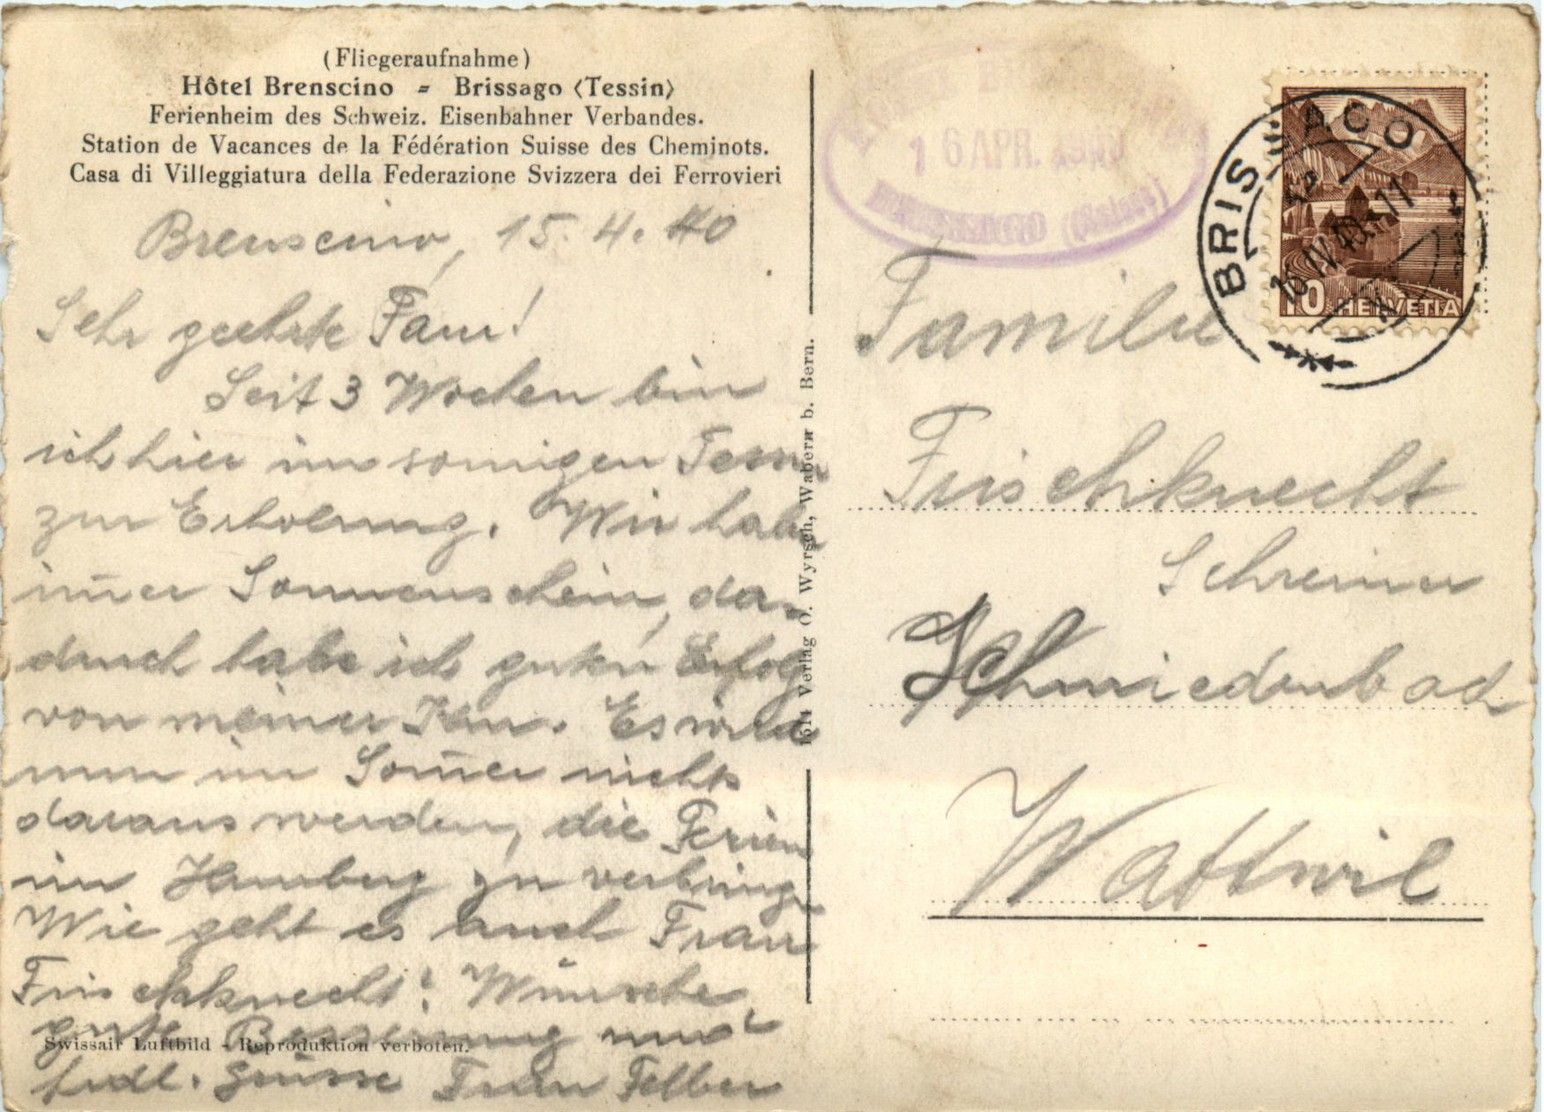 (Fliegeraufnahme)
Hôtel Brenscino = Brissago (Tessin)
Ferienheim des Schweiz. Eisenbahner Verbandes.
Station de Vacances de la Fédération Suisse des Cheminots.
Casa di Villeggiatura della Federazione Svizzera dei Ferrovieri
Brenscino, 15. 4. 40
Sehr geehrte Fam!
Seit 3 Wochen bin
ich hier im sonnigen Tessin
zur Erholung. Wir haben
im̄er Sonnenschein, da-
durch habe ich guten Erfolg
von meiner Kur. Es wird
nun im Som̄er nichts
daraus werden, die Ferien
im Hemberg zu verbringen
Wie geht es auch Frau
Frischknecht? Wünsche
gute Besserung und
frdl. Grüsse Frau Felber
Swissair Luftbild - Reproduktion verboten.
1514 Verlag O. Wyrsch, Wabern b. Bern.
16 APR. 1940
BRISSAGO
BRISSAGO
16.IV.40.-11
10 HELVETIA
Familie
Frischknecht
Schreiner
Schmiedenbach
Wattwil